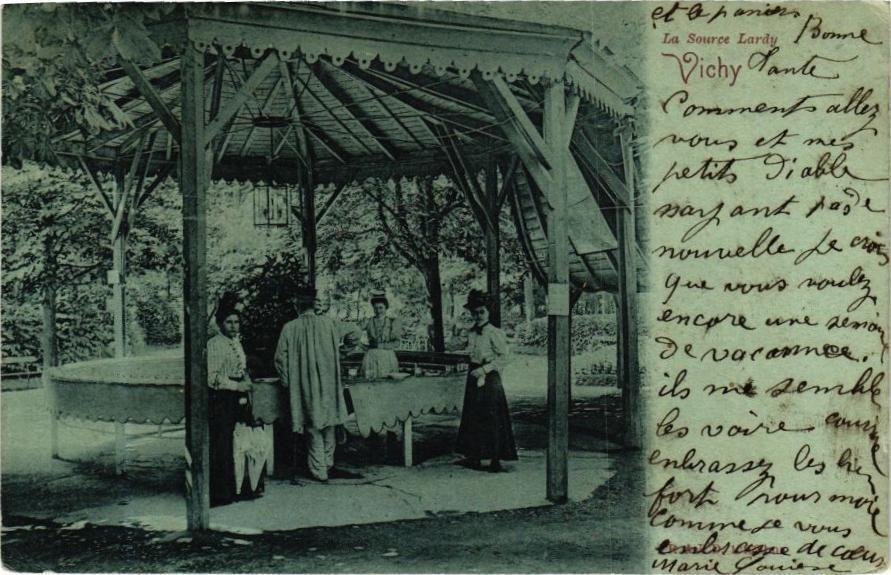 et le paniers Bonne
La Source Lardy
Vichy Tante
Comments allez
vous et mes
petits Diable
nayant pas de
nouvelle Je crois
que vous voulez
encore une semaine
de vacannce.
ils me semble
les voire
enbrassez les bien
fort pour moi
comme Je vous
enbrasse de cœur
Marie Louise